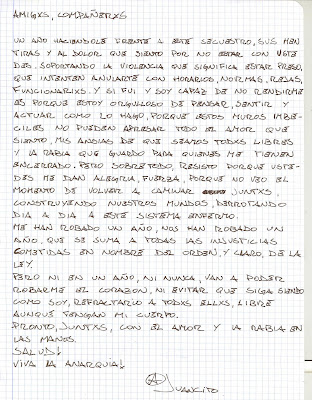 AMIGXS, COMPAÑERXS
UN AÑO HACIENDOLE FRENTE A ESTE SECUESTRO, SUS MEN
TIRAS Y AL DOLOR QUE SIENTO POR NO ESTAR CON USTE
DES. SOPORTANDO LA VIOLENCIA QUE SIGNIFICA ESTAR PRESO,
QUE INTENTEN ANULARTE CON HORARIOS, NORMAS, REJAS,
FUNCIONARIXS. Y SI FUI Y SOY CAPAZ DE NO RENDIRME
ES PORQUE ESTOY ORGULLOSO DE PENSAR, SENTIR Y
ACTUAR COMO LO HAGO, PORQUE ESTOS MUROS IMBE-
CILES NO PUEDEN APRESAR TODO EL AMOR QUE
SIENTO, MIS ANSIAS DE QUE SEAMOS TODXS LIBRES
Y LA RABIA QUE GUARDO PARA QUIENES ME TIENEN
ENCERRADO. PERO SOBRETODO, RESISTO PORQUE USTE-
DES ME DAN ALEGRIA, FUERZA, PORQUE NO VEO EL
MOMENTO DE VOLVER A CAMINAR JUNTXS,
CONSTRUYENDO NUESTROS MUNDOS, DERROTANDO
DIA A DIA A ESTE SISTEMA ENFERMO.
ME HAN ROBADO UN AÑO, NOS HAN ROBADO UN
AÑO, QUE SE SUMA A TODAS LAS INJUSTICIAS
COMETIDAS EN NOMBRE DEL ORDEN, Y CLARO, DE LA
LEY.
PERO NI EN UN AÑO, NI NUNCA, VAN A PODER
ROBARME EL CORAZON, NI EVITAR QUE SIGA SIENDO
COMO SOY, REFRACTARIO A TODXS ELLXS, LIBRE
AUNQUE TENGAN MI CUERPO.
PRONTO, JUNTXS, CON EL AMOR Y LA RABIA EN
LAS MANOS.
SALUD!
VIVA LA ANARQUIA!
JUANCITO